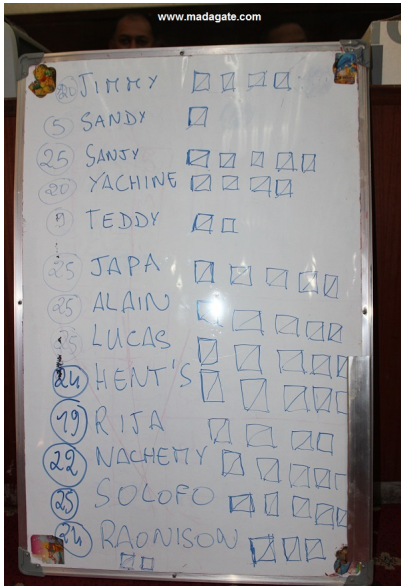 www.madagate.com
20 JIMMY
5 SANDY
25 SANJY
20 YACHINE
9 TEDDY
25 JAPA
25 ALAIN
25 LUCAS
24 HENT'S
19 RIJA
22 NACHEMY
25 SOLOFO
24 RAONISON